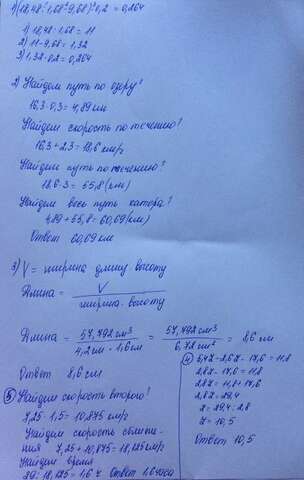 1) (18,48 : 1,68 - 9,68) · 0,2 = 0,264
1) 18,48 : 1,68 = 11
2) 11 - 9,68 = 1,32
3) 1,32 · 0,2 = 0,264
2) Найдем путь по озеру:
16,3 · 0,3 = 4,89 км
Найдем скорость по течению!
16,3 + 2,3 = 18,6 км/ч
Найдем путь по течению!
18,6 · 3 = 55,8 (км)
Найдем весь путь катера!
4,89 + 55,8 = 60,69 (км)
Ответ 60,69 км
3) V = ширина длину высоту
Длина = V
ширина · высоту
Длина = 57,792 см³ = 57,792 см³ = 8,6 см
4,2 см · 1,6 см 6,72 см²
Ответ 8,6 см
4) 5,4Z - 2,6Z - 17,6 = 11,8
2,8Z - 17,6 = 11,8
2,8Z = 11,8 + 17,6
2,8Z = 29,4
Z = 29,4 : 2,8
Z = 10,5
Ответ 10,5
5) Найдем скорость второго!
7,25 · 1,5 = 10,875 км/ч
Найдем скорость сближе-
ния 7,25 + 10,875 = 18,125 км/ч
Найдем время
29 : 18,125 = 1,6 ч Ответ 1,6 часа